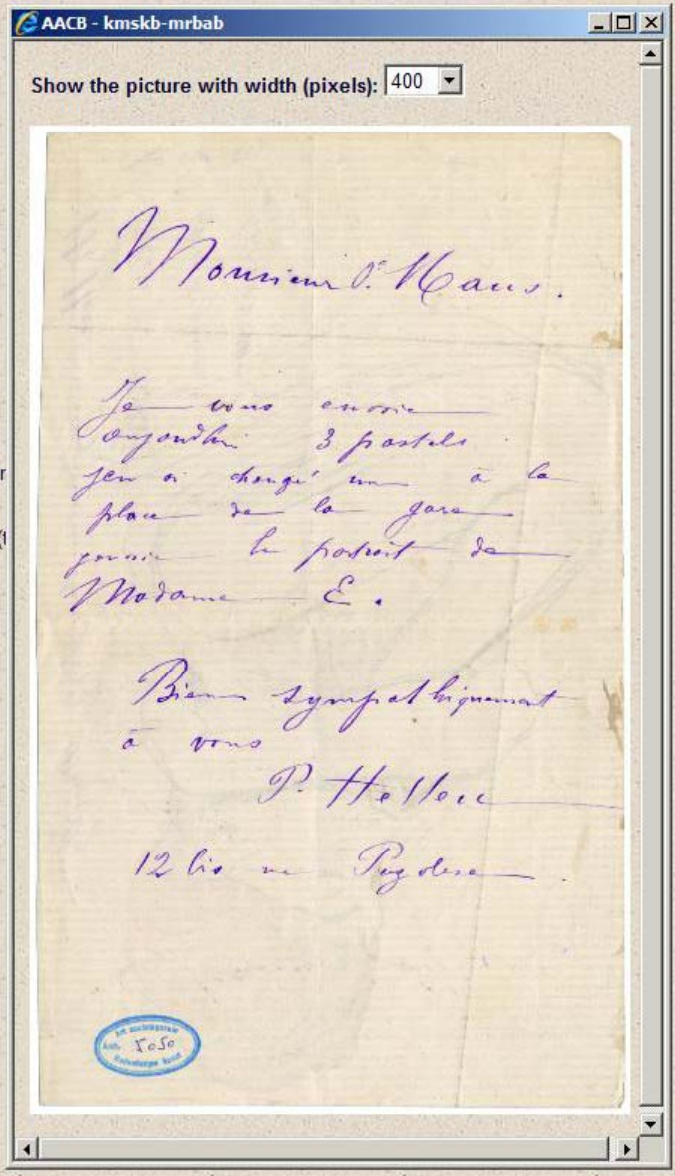 AACB - kmskb-mrbab
Show the picture with width (pixels): 400
Monsieur O. Maus.
Je vous envoie
aujourdhui 3 pastels
jen ai changé un à la
place de la gare
j'envoie le portrait de
Madame E.
Bien sympathiquement
à vous
P. Helleu
12 bis rue Pergolese.
5050